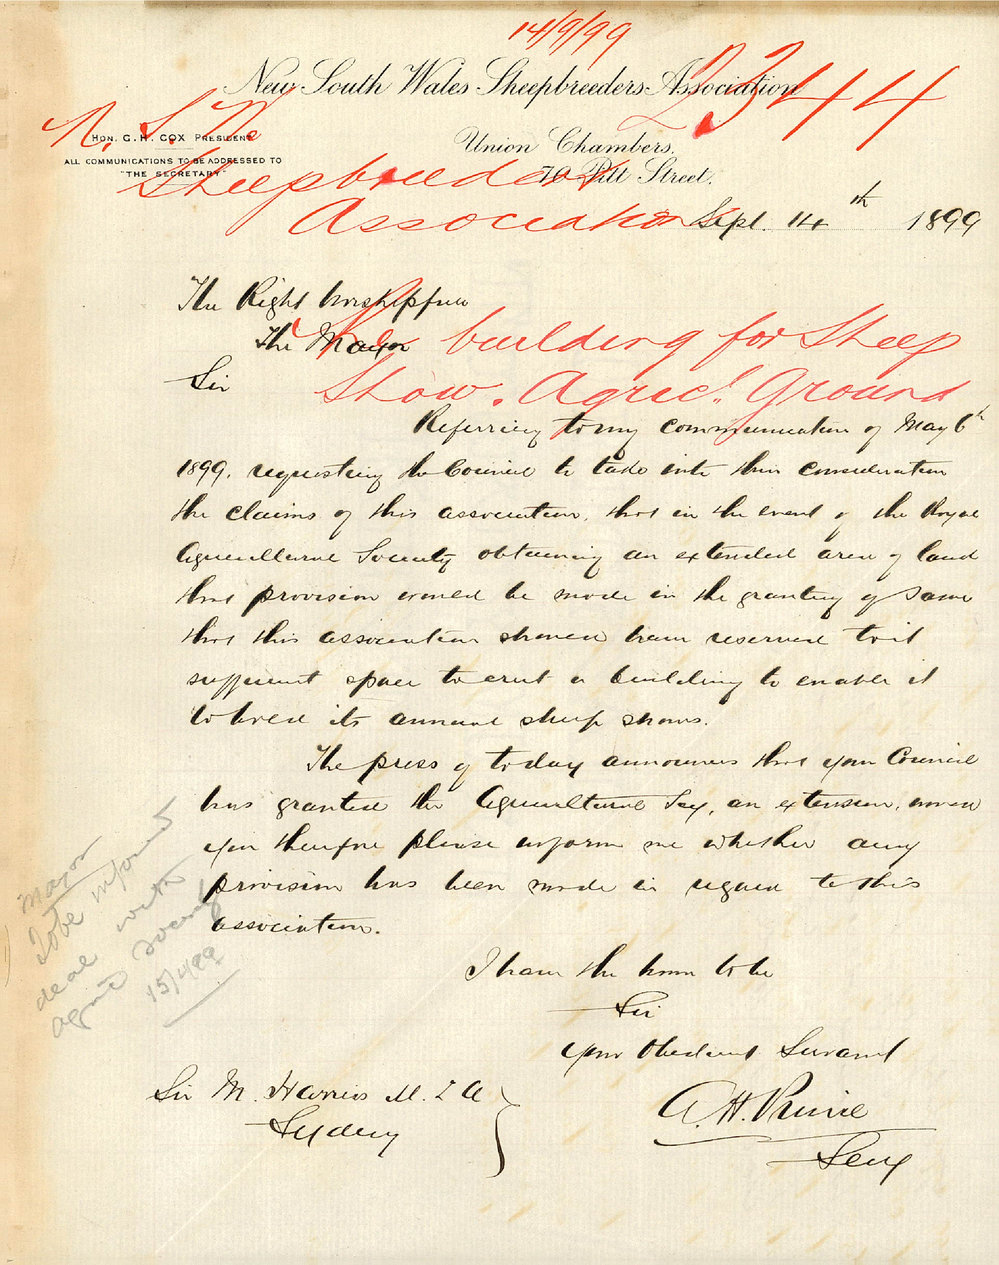 14/9/99
New South Wales Sheepbreeders Association
2344
N. S. W.
HON. G. H. COX PRESIDENT
Union Chambers,
ALL COMMUNICATIONS TO BE ADDRESSED TO
"THE SECRETARY"
70 Pitt Street,
Sheepbreeders
Association
Sept. 14th 1899
The Right Worshipful
The Mayor
building for Sheep
Sir
Show. Agricl. Ground
Referring to my communication of May 6th
1899, requesting the Council to take into their consideration
the claims of this association, that in the event of the Royal
Agricultural Society obtaining an extended area of land
that provision would be made in the granting of same
that this association should have reserved to it
sufficient space to erect a building to enable it
to hold its annual sheep shows.
The press of today announces that your Council
has granted the Agricultural Socy, an extension, would
you therefore please inform me whether any
provision has been made in regard to this
association.
I have the honor to be
Sir
Your Obedient Servant
A. H. Prince
Secy
Sir M. Harris M. L A
Sydney
Mayor
To be informed
deal with
agric society
15/9/99